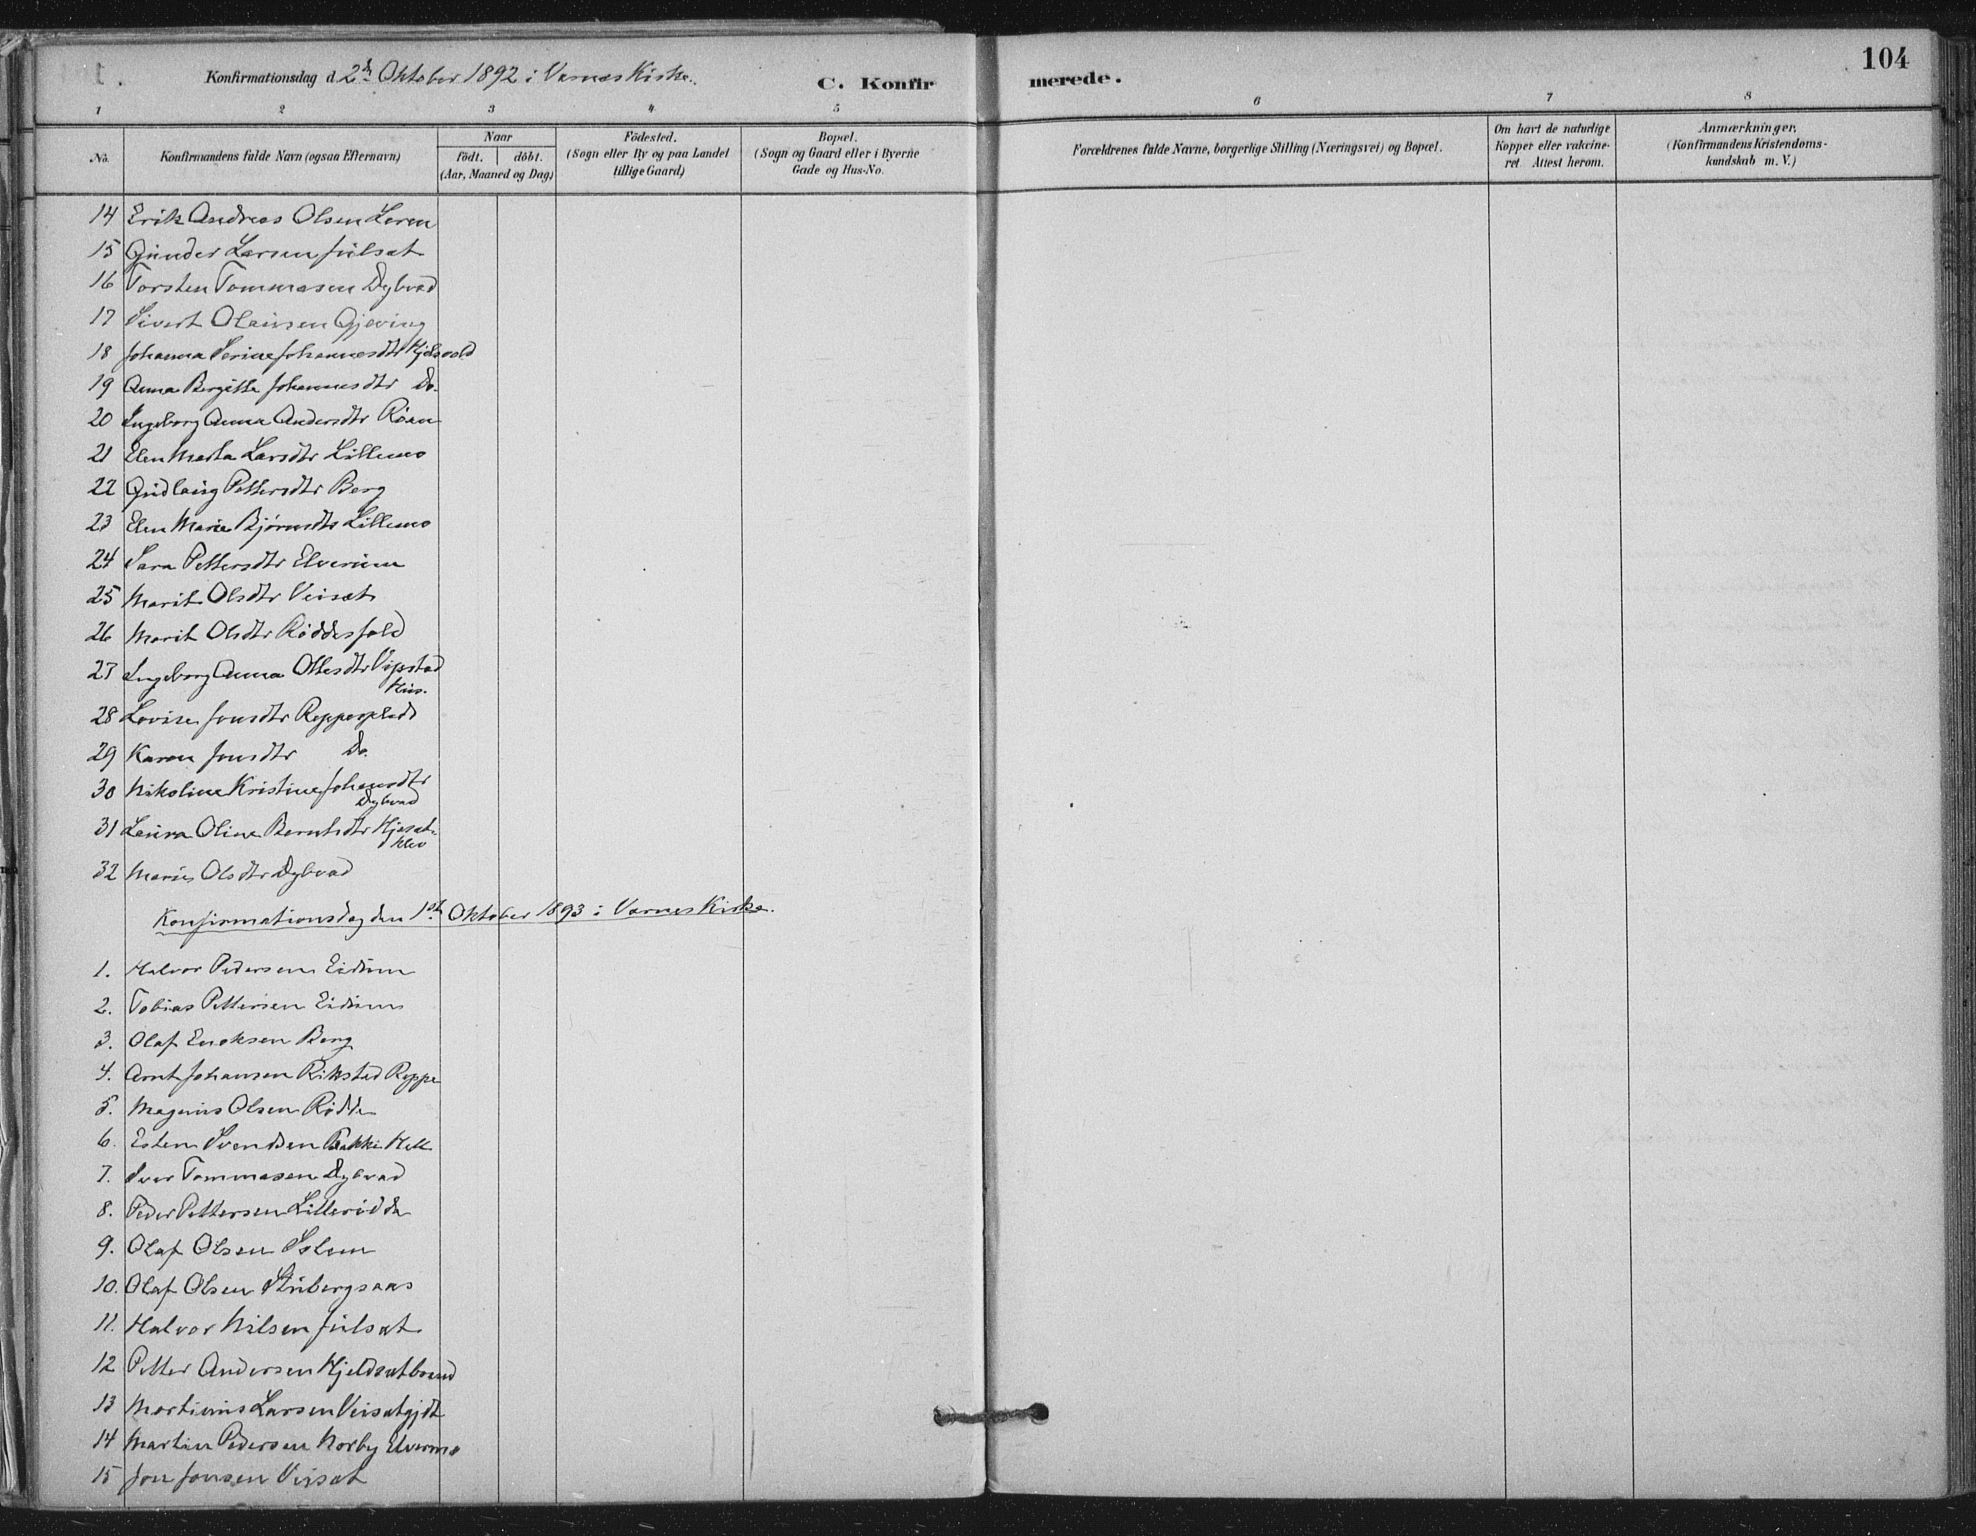 Konfirmationsdag d. 2den Oktober 1892 i Værnes Kirke.
C. Konfirmerede.
104
1 2 3 4 5 6 7 8
No.
Konfirmandens fulde Navn (ogsaa Efternavn)
Naar
født. døbt.
(Aar, Maaned og Dag)
Födested.
(Sogn eller By og paa Landet
tillige Gaard)
Bopæl.
(Sogn og Gaard eller i Byerne
Gade og Hus-No.
Forældrenes fulde Navne, borgerlige Stilling (Næringsvei) og Bopæl.
Om havt de naturlige
Kopper eller vakcine-
ret. Attest herom.
Anmærkninger.
(Konfirmandens Kristendoms-
kundskab m. V.)
14 Erik Andreas Olsen Leren
15 Gunder Larsen Julsæt
16 Torsten Tommasen Dybvad
17 Sivert Olausen Gjeving
18 Johanna Serine Johannesdtr
19 Anna Bergitte Johannesdtr Do.
20 Ingeborg Anna Andersdtr Röan
21 Elen Marta Larsdtr Lillemo
22 Gudlaug Pettersdtr Berg
23 Elen Marie Bjørnsdtr Lillemo
24 Sara Pettersdtr Elverum
25 Marit Olsdtr Veisæt
26 Marit Olsdtr Røddesfald
27 Ingeborg Anna Ottesdtr Vipstad
28 Lovise Jonsdtr Reppesplads
29 Karen Jonsdtr Do.
30 Nikoline Kristine Johansdtr
Dybvad
31 Laura Oline Berntsdtr
32 Marie Olsdtr Dybvad
Konfirmationsdag den 1ste Oktober 1893 i Værnes Kirke.
1. Halvor Pedersen Eidum
2. Tobias Pettersen Eidum
3. Olaf Enoksen Berg
4. Arnt Johansen Rikstad Reppe
5. Magnus Olsen Rødde
6. Esten Svendsen Bakke Hell
7. Iver Tommasen Dybvad
8. Peder Pettersen Lillerødde
9. Olaf Olsen Solem
10. Olaf Olsen Stubergsaas
11. Halvor Nilsen Julsæt
12 Petter Andersen
13 Martinus Larsen
14 Martin Pedersen Norby Elvermo
15 Jon Jonsen Veisæt